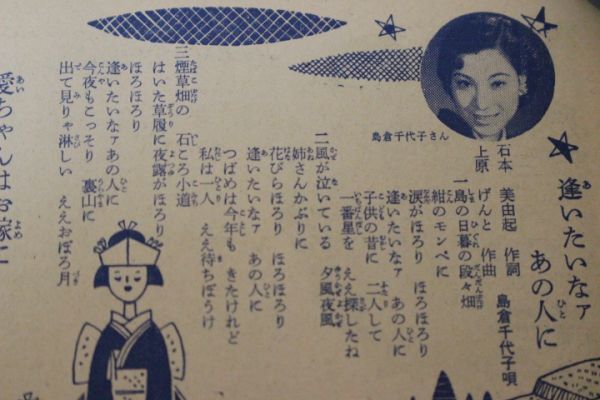 島倉千代子さん
逢いたいなァ
あの人に
石本 美由起 作詞
上原 げんと 作曲
島倉千代子唄
一 島の日暮の段々畑
紺のモンペに
涙がほろり ほろほろり
逢いたいなァ あの人に
子供の昔に 二人して
一番星を ええ探したね
二 風が泣いている 夕風夜風
姉さんかぶりに
花びらほろり ほろほろり
逢いたいなァ あの人に
つばめは今年も きたけれど
私は一人 ええ待ちぼうけ
三 煙草畑の 石ころ小道
はいた草履に夜露がほろり
ほろほろり
逢いたいなァあの人に
今夜もこっそり 裏山に
出て見りゃ淋しい ええおぼろ月
愛ちゃんはお嫁に